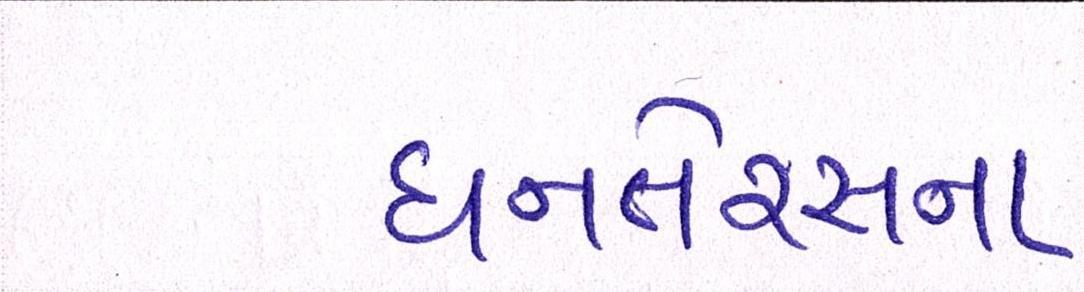 ધનતેરસના